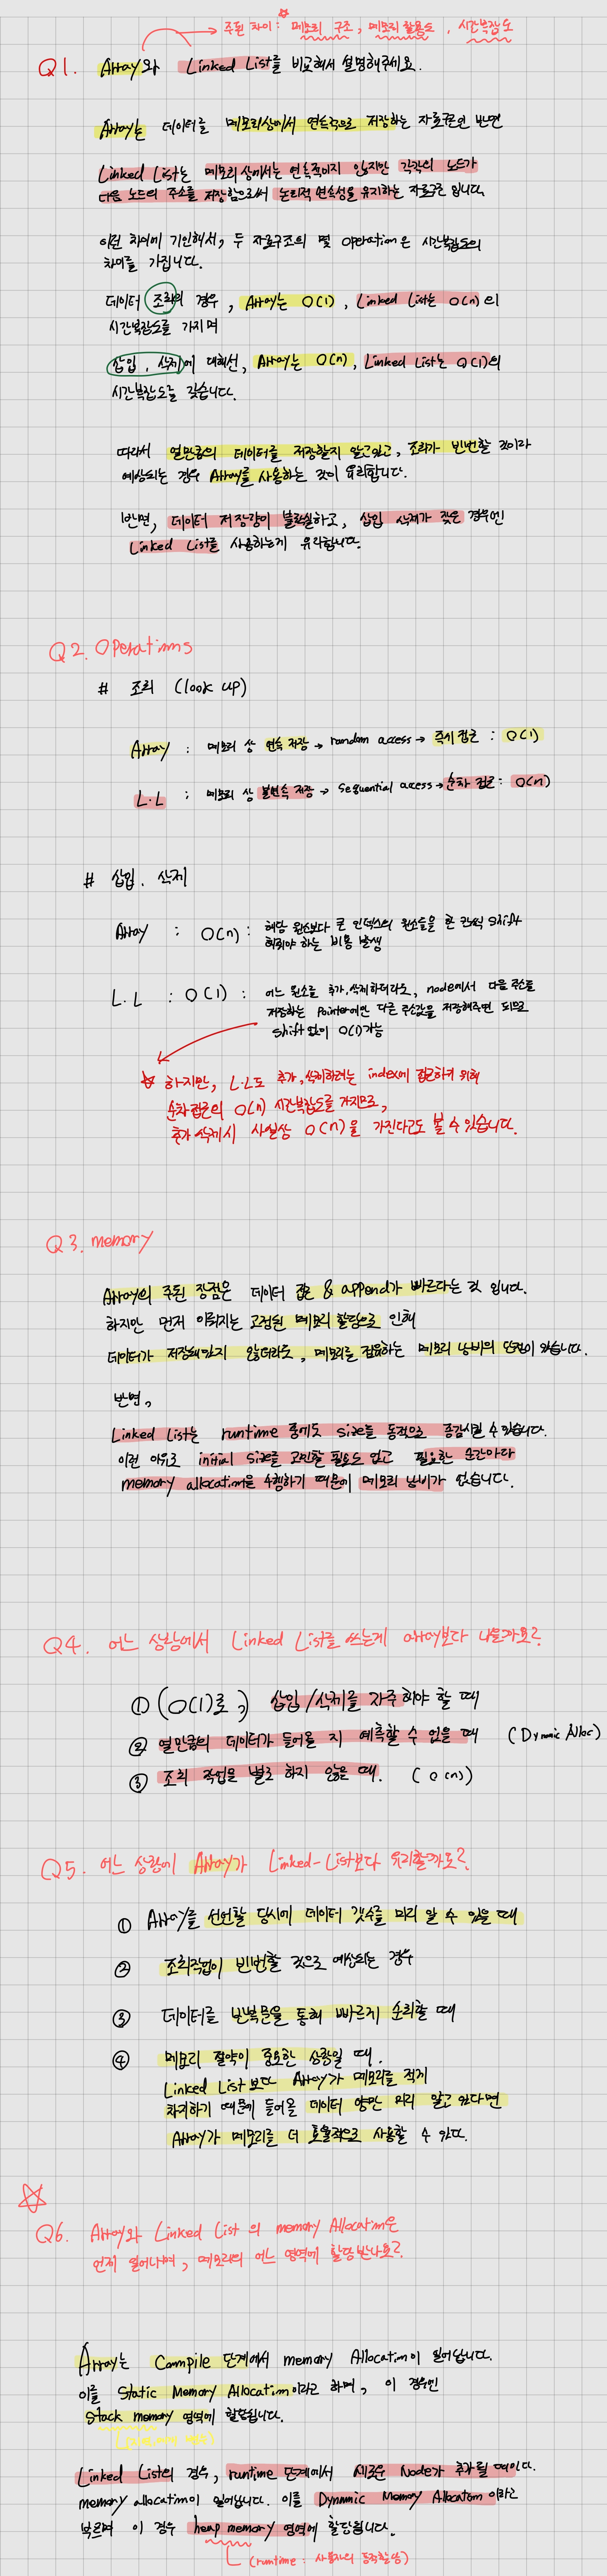 주된 차이 : 메모리 구조, 메모리 활용도, 시간복잡도
Q1. Array와 Linked List를 비교해서 설명해주세요.
Array는 데이터를 메모리상에서 연속적으로 저장하는 자료구조인 반면
Linked List는 메모리상에서는 연속적이지 않지만 각각의 노드가
다음 노드의 주소를 저장함으로써 논리적 연속성을 유지하는 자료구조 입니다.
이런 차이에 기인해서, 두 자료구조의 몇 operation은 시간복잡도의
차이를 가집니다.
데이터 조회의 경우, Array는 O(1), Linked List는 O(n)의
시간복잡도를 가지며
삽입, 삭제에 대해선, Array는 O(n), Linked List는 O(1)의
시간복잡도를 갖습니다.
따라서 얼만큼의 데이터를 저장할지 알고있고, 조회가 빈번할 것이라
예상되는 경우 Array를 사용하는 것이 유리합니다.
반면, 데이터 저장량이 불확실하고, 삽입 삭제가 잦은 경우엔
Linked List를 사용하는게 유리합니다.
Q2. Operations
# 조회 (look up)
Array : 메모리 상 연속 저장 → random access → 즉시 접근 : O(1)
L.L : 메모리 상 불연속 저장 → Sequential access → 순차 접근 : O(n)
# 삽입, 삭제
Array : O(n) : 해당 원소보다 큰 인덱스의 원소들을 한 칸씩 shift
해줘야 하는 비용 발생
L.L : O(1) : 어느 원소를 추가, 삭제 하더라도, node에서 다음 주소를
저장하는 Pointer에만 다른 주소값을 저장해주면 되므로
shift 없이 O(1) 가능
☆ 하지만, L.L도 추가, 삭제하려는 index에 접근하기 위해
순차접근의 O(n) 시간복잡도를 가지므로,
추가 삭제시 사실상 O(n)을 가진다고도 볼 수 있습니다.
Q3. memory
Array의 주된 장점은 데이터 접근 & append가 빠르다는 것 입니다.
하지만 먼저 이뤄지는 고정된 메모리 할당으로 인해
데이터가 저장돼있지 않더라도, 메모리를 점유하는 메모리 낭비의 단점이 있습니다.
반면,
Linked List는 runtime 중에도 size를 동적으로 증감시킬 수 있습니다.
이런 이유로 initial size를 고민할 필요도 없고 필요한 순간마다
memory allocation을 수행하기 때문에 메모리 낭비가 없습니다.
Q4. 어느 상황에서 Linked List를 쓰는게 array보다 나을까요?
① (O(1)로,) 삽입/삭제를 자주 해야 할 때
② 얼만큼의 데이터가 들어올 지 예측할 수 없을 때 (Dynamic Alloc)
③ 조회 작업을 별로 하지 않을 때. (O(n))
Q5. 어느 상황에 Array가 Linked-List보다 유리할까요?
① Array를 선언할 당시에 데이터 갯수를 미리 알 수 있을 때
② 조회작업이 빈번할 것으로 예상되는 경우
③ 데이터를 반복문을 통해 빠르게 순회할 때
④ 메모리 절약이 중요한 상황일 때.
Linked List 보다 Array가 메모리를 적게
차지하기 때문에 들어올 데이터 양만 미리 알고 있다면
Array가 메모리를 더 효율적으로 사용할 수 있다.
Q6. Array와 Linked List 의 memory Allocation은
언제 일어나며, 메모리의 어느 영역에 할당 받나요?
Array는 Compile 단계에서 memory Allocation이 일어납니다.
이를 Static Memory Allocation이라고 하며, 이 경우엔
Stack memory 영역에 할당됩니다.
Linked List의 경우, runtime 단계에서 새로운 Node가 추가될 때마다
memory allocation이 일어납니다. 이를 Dynamic Memory Allocation 이라고
부르며 이 경우 heap memory 영역에 할당됩니다.
(runtime : 사용자의 동적할당)